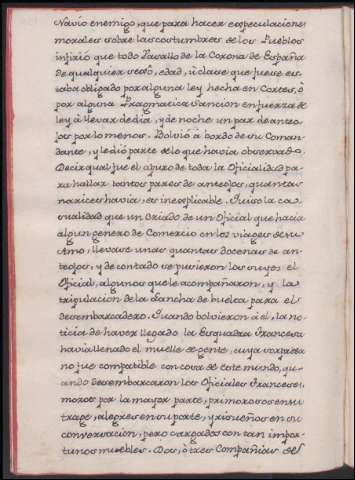 Navio enemigo, que para hacer especulaciones
morales sobre las costumbres de los Pueblos
infirió que todo Vasallo de la Corona de España
de qualquiera sexo, edad, ú clase que fuese es-
taba obligado por alguna ley hecha en Cortes, ó
por alguna Pragmatica Sancion en fuerza de
ley á llevar de dia, y de noche un par de anteo-
jos por lo menos. Bolvió a bordo de su Coman-
dante, y le dió parte de lo que havia observado.
Decir qual fue el apuro de toda la Oficialidad pa-
ra hallar tantos pares de anteojos, quantas
narices havia, es inexplicable. Quiso la ca-
sualidad que un Criado de un Oficial que hacia
algun genero de Comercio en los viages de su
Amo, llevase unas quantas docenas de an-
teojos, y de contado se pusieron los suyos el
Oficial, algunos que le acompañaron, y la
tripulacion de la Lancha de buelta para el
desembarcadero. Quando bolvieron á él, la no-
ticia de haver llegado la Esquadra Francesa
havia llenado el muelle de gente, cuya sorpresa
no fue compatible con cosa de este mundo, qu-
ando desembarcaron los Oficiales Franceses,
mozos por la mayor parte, primorosos en su
trage, alegres en su porte, y risueños en su
conversacion, pero cargados con tan impor-
tunos muebles. Dos, ó tres Compañias de